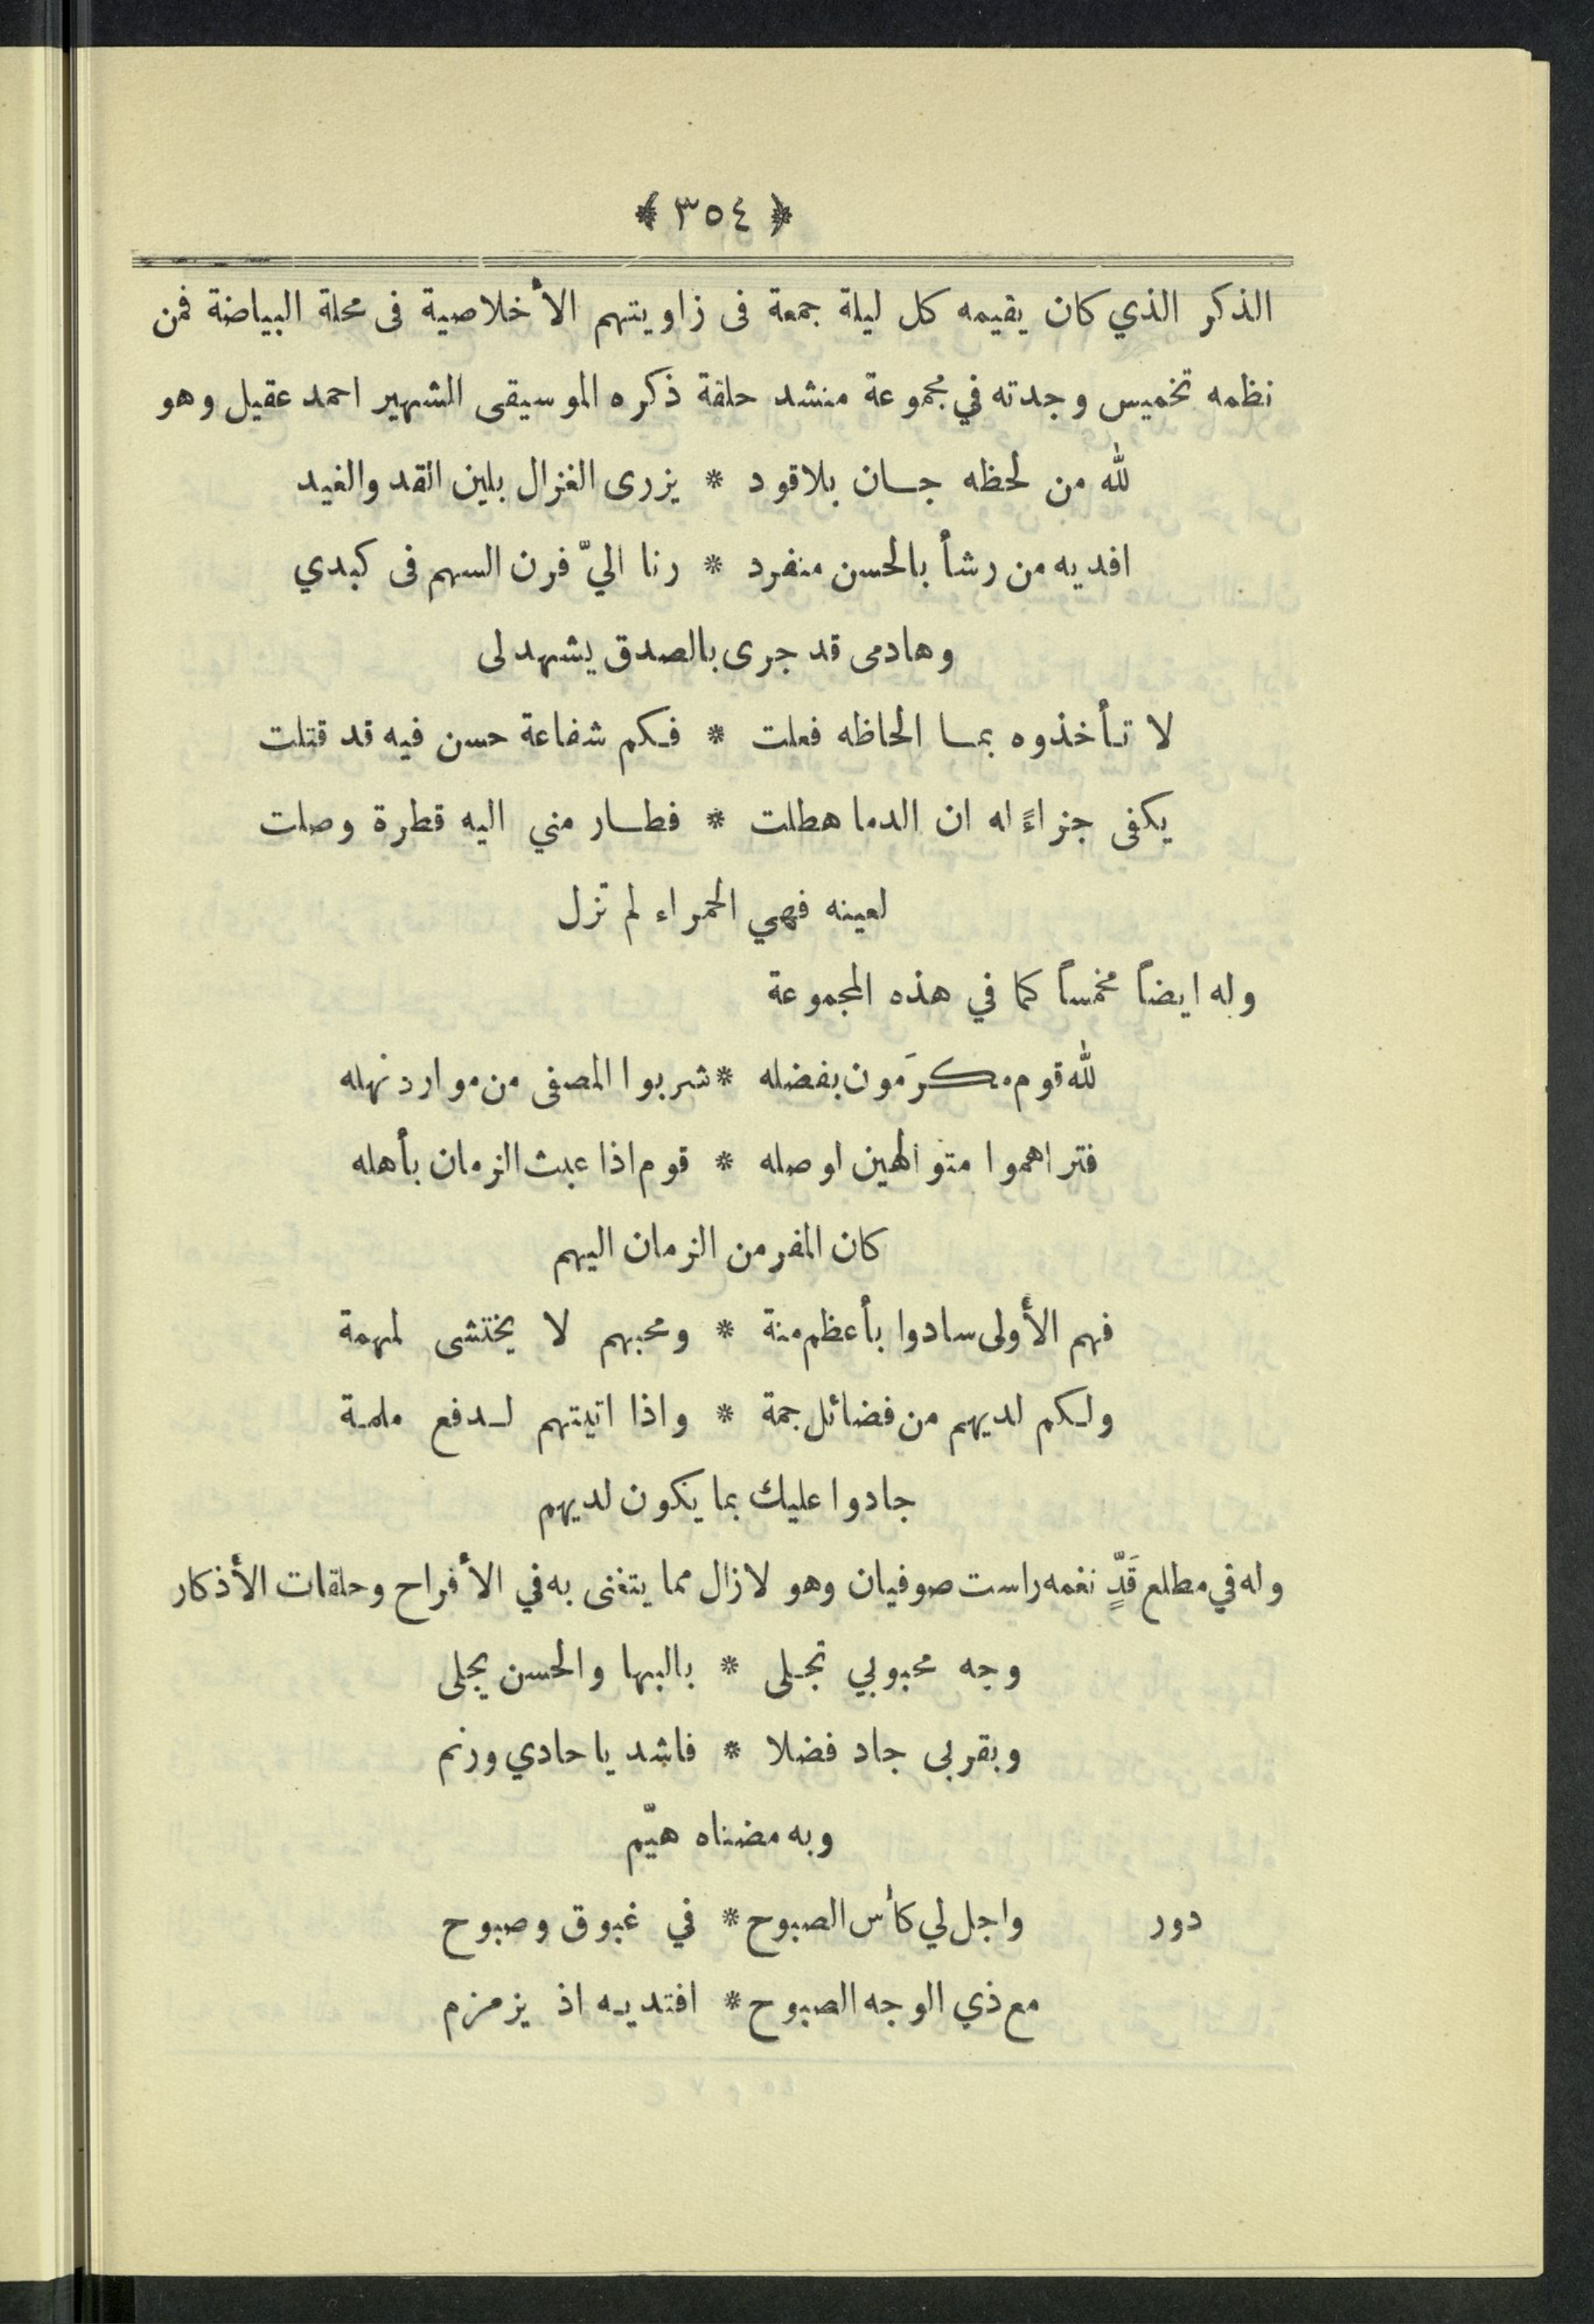 ﴿ ٣٥٤ ﴾
الذكر الذي كان يقيمه كل ليلة جمعة فى زاويتهم الأخلاصية فى محلة البياضة فمن
نظمه تخميس وجدته في مجموعة منشد حلقة ذكره الموسيقى الشهير احمد عقيل وهو
لله من لحظه جان بلاقود * يزرى الغزال بلين القد والغيد
افديه من رشأ بالحسن منفرد * رنا اليّ فرن السهم فى كبدي
وهادمى قد جرى بالصدق يشهد لى
لا تأخذوه بما الحاظه فعلت * فكم شفاعة حسن فيه قد قتلت
يكفى جزاءً له ان الدما هطلت * فطار مني اليه قطرة وصلت
لعينه فهي الحمراء لم تزل
وله ايضاً مخمساً كما في هذه المجموعة
لله قوم مكرَمون بفضله * شربوا المصفى من موارد نهله
فتراهموا متوالهين لوصله * قوم اذا عبث الزمان بأهله
كان المفر من الزمان اليهم
فهم الأولى سادوا بأعظم منة * ومحبهم لا يختشى لمهمة
ولكم لديهم من فضائل جمة * واذا اتيتهم لدفع ملمة
جادوا عليك بما يكون لديهم
وله في مطلع قَدٍّ نغمه راست صوفيان وهو لازال مما يتغنى به في الأفراح وحلقات الأذكار
وجه محبوبي تجلى * بالبها والحسن يجلى
وبقربى جاد فضلا * فاشد يا حادي ورنم
وبه مضناه هيّم
دور واجل لي كأس الصبوح * في غبوق وصبوح
مع ذي الوجه الصبوح * افتديه اذ يزمزم